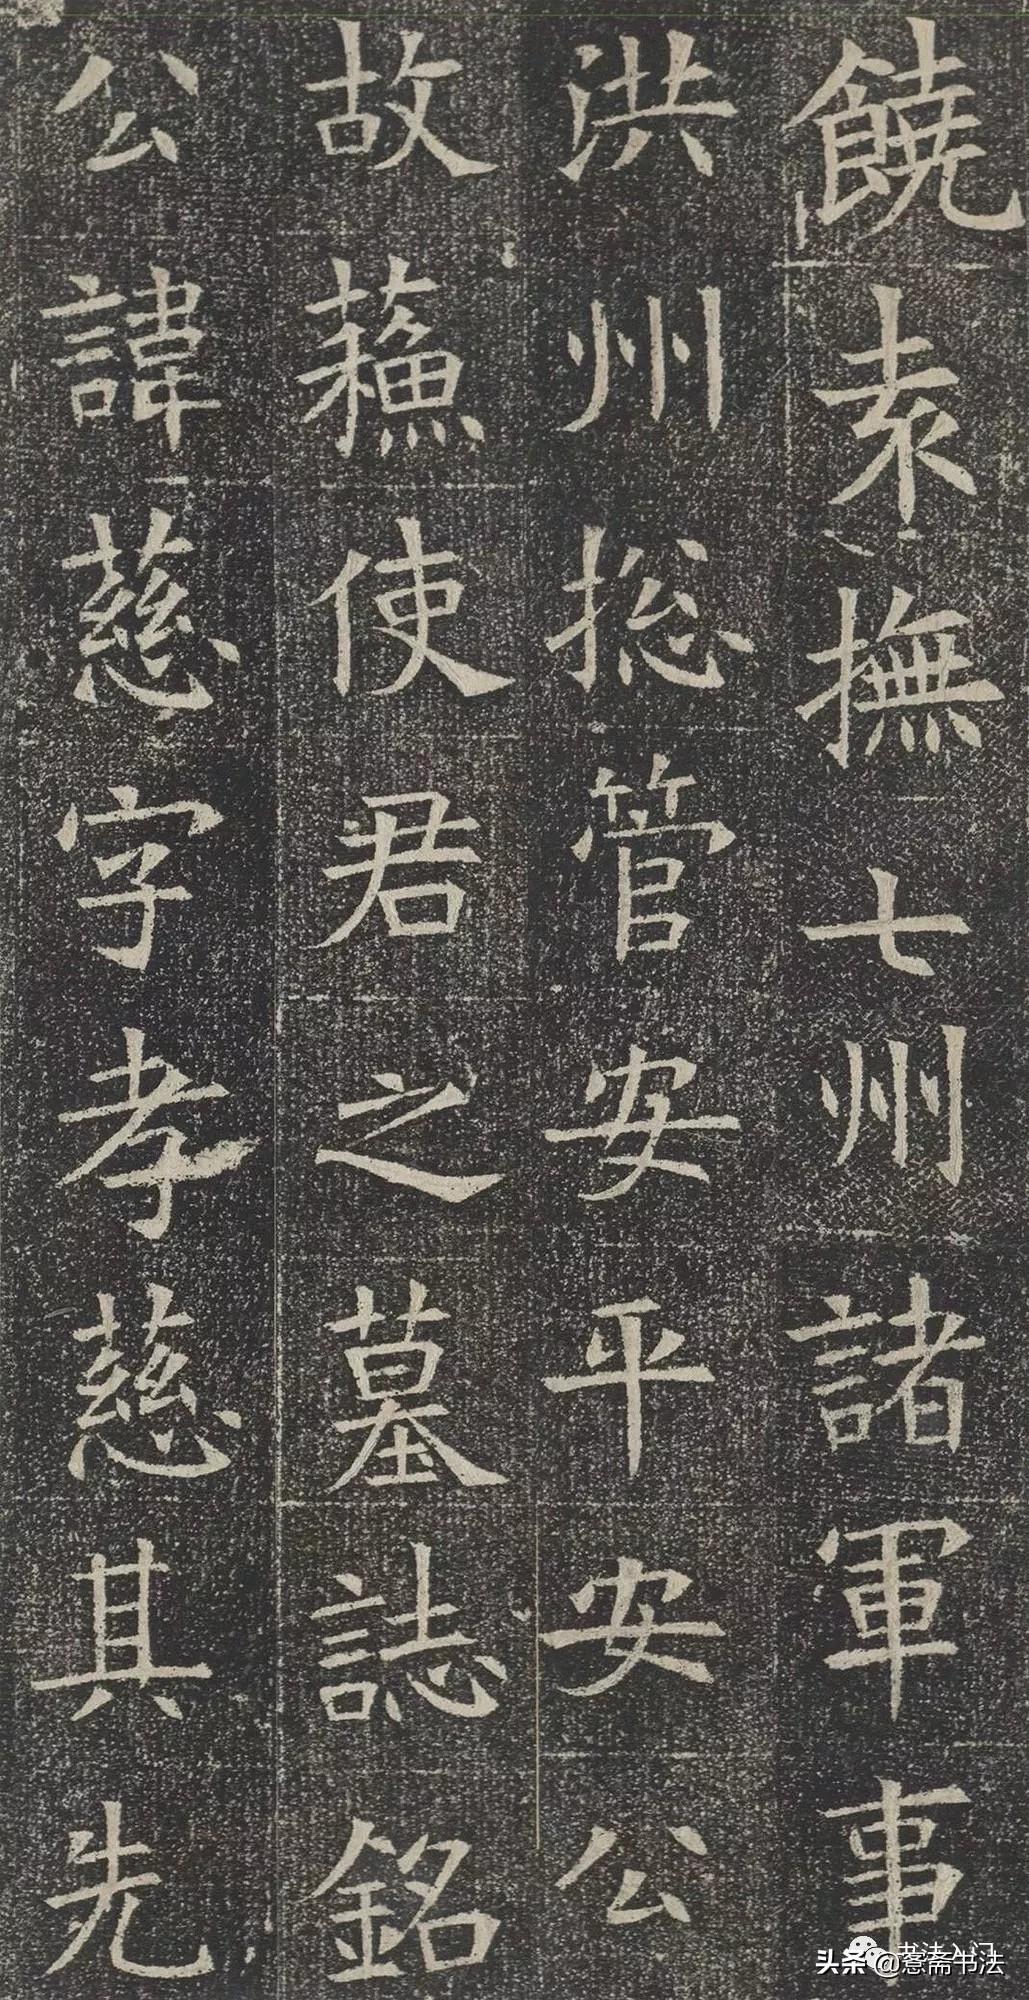 饒袁撫七州諸軍事
洪州捴管安平安公
故蘓使君之墓誌銘
公諱慈字孝慈其先
书法入门
头条@惷斋书法